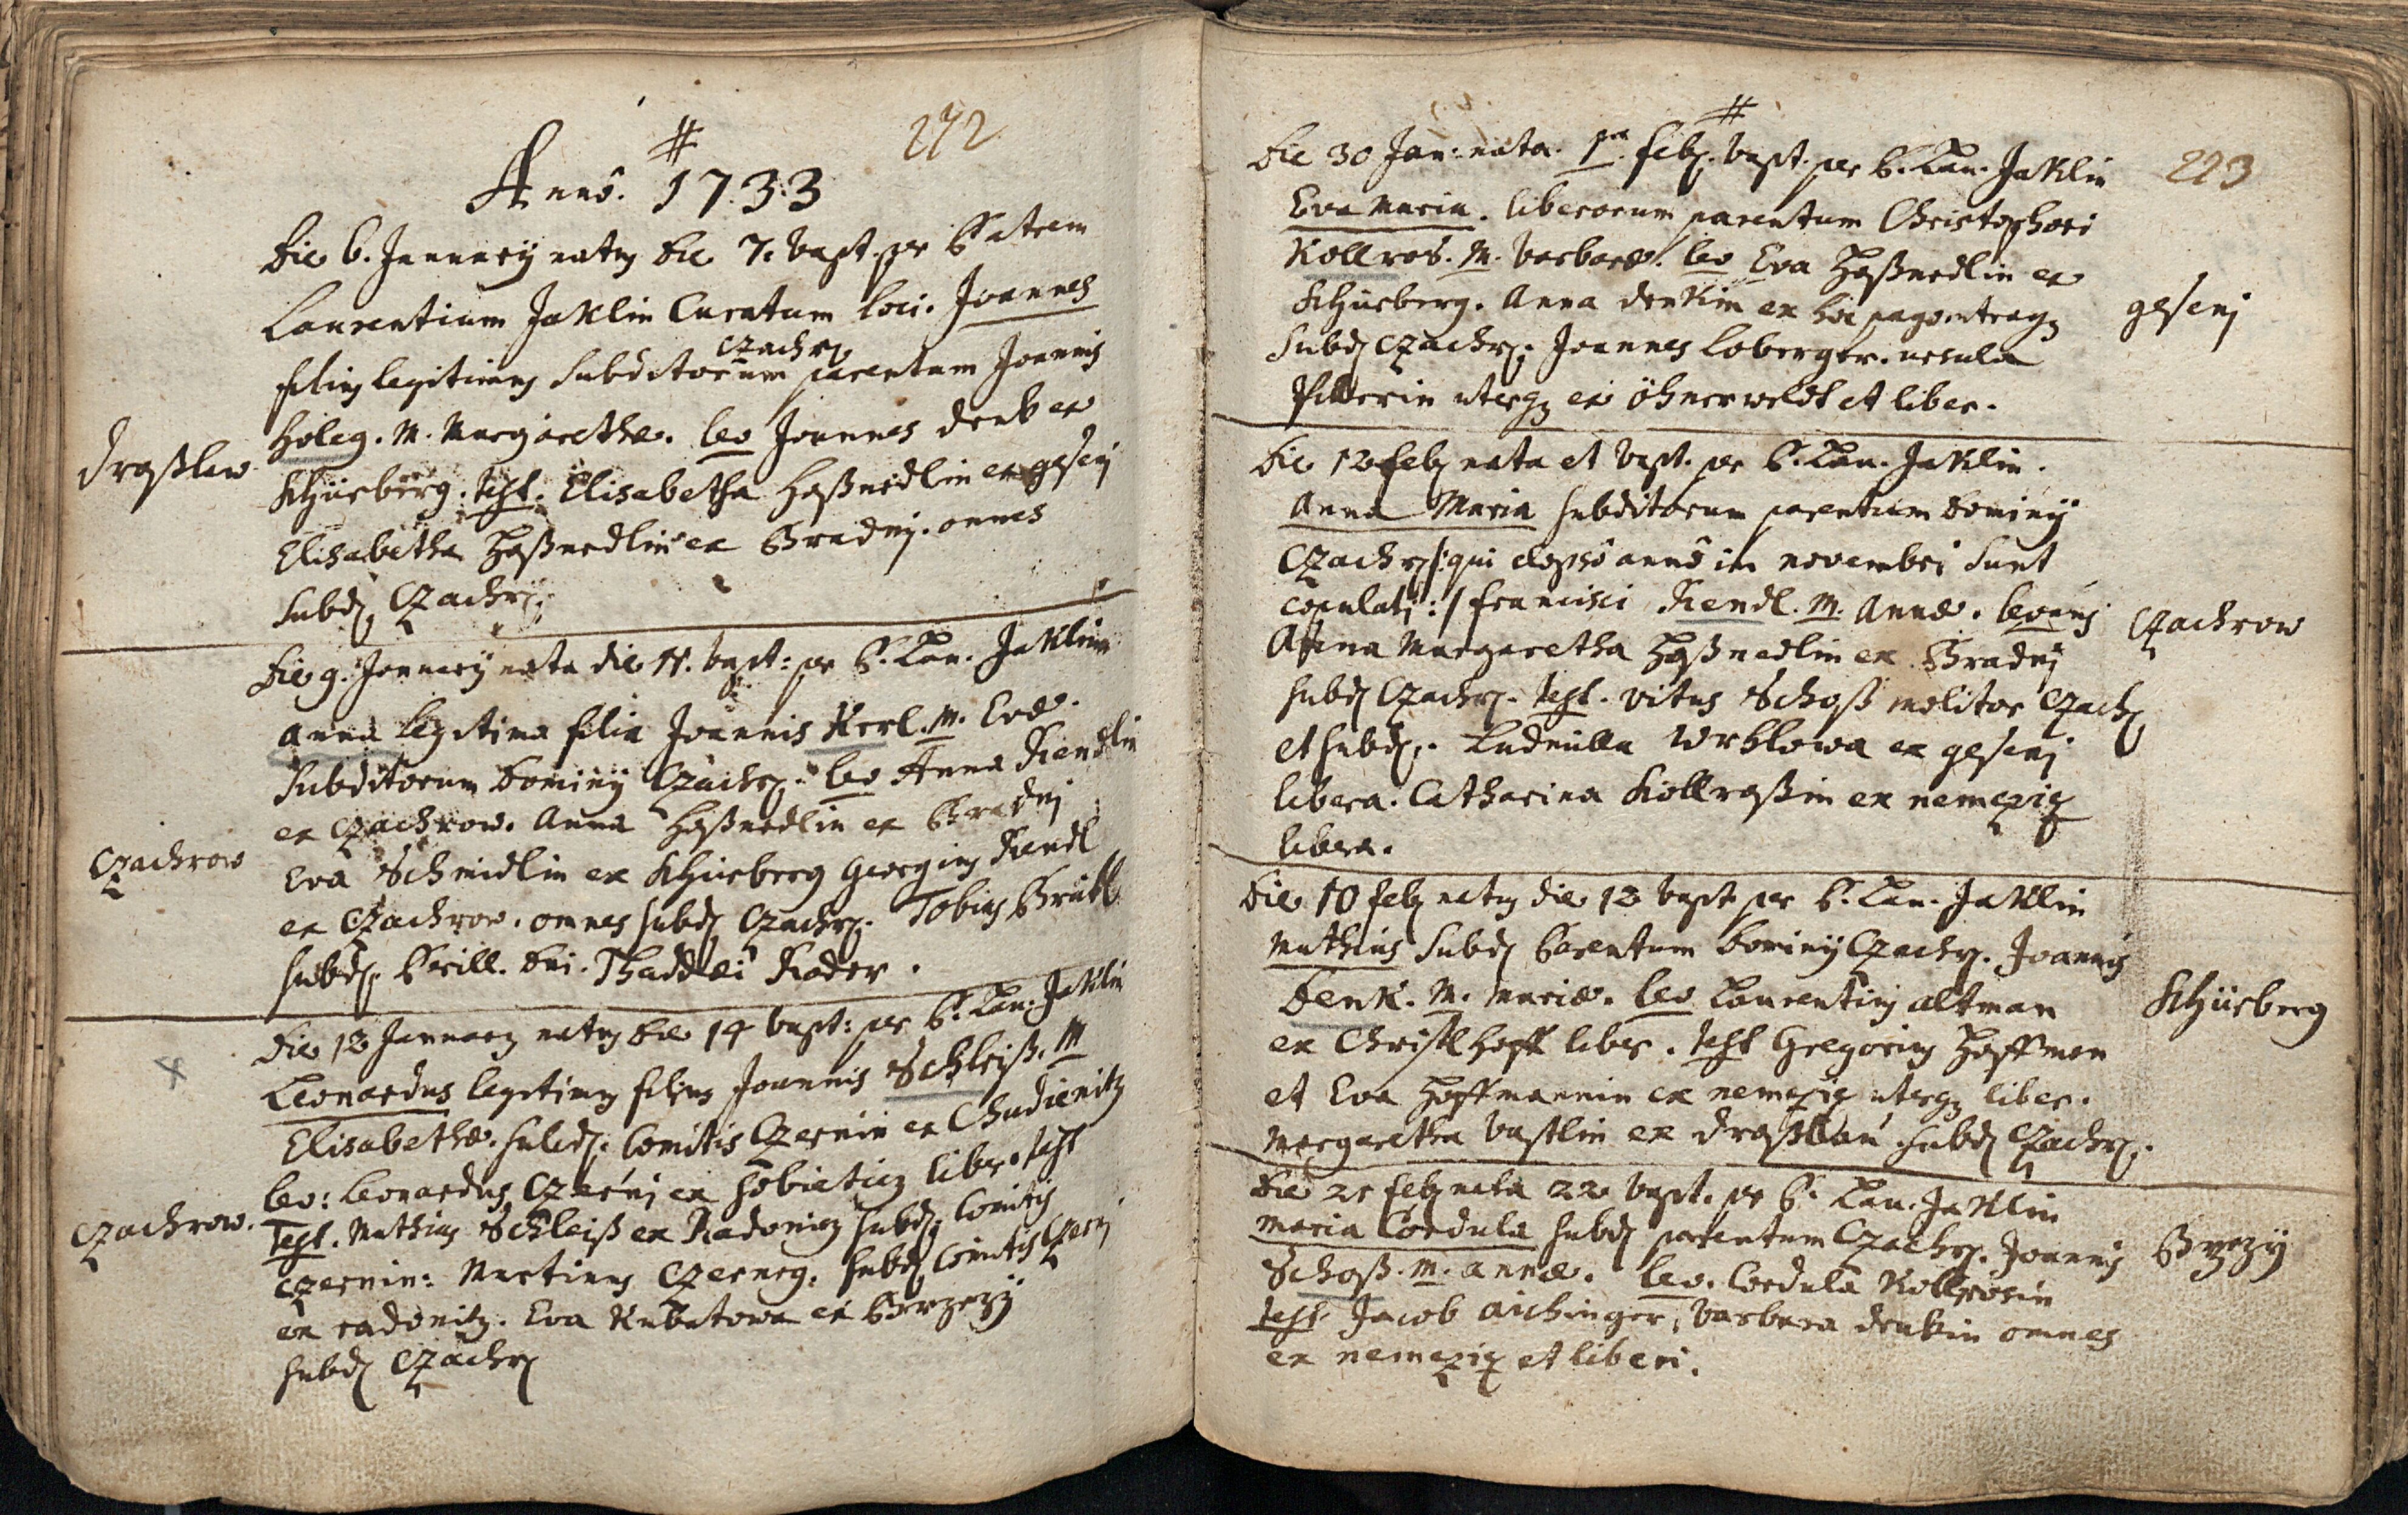 272
Anno. 1733
Die 6. Januarij natus die 7. bapt. per Patrem
Laurentium Jaklin Curatum loci. Joannes
czachr.
filius legitimus subditorum parentum Joannis
Holeg. M. Margarethæ. lev Joannes denk ex
draßlaw
Schürberg. test. Elisabetha Haßnedlin ex gesenj
Elisabetha Haßnedlin ex Bradnj. omnes
subd. Czachr.
Die 9. Januarij nata die 11. bapt: per P. Lau. Jaklin
Anna legitima filia Joannis Kerl. M. Evæ.
subditorum Dominij Czachr. lev Anna Rendlin
ex czachrow. Anna Haßnedlin ex Bradnj
Czachrow
Eva Schmidlin ex Schürberg Georgius Rendl
ex Czachrow. omnes subd. Czachr. Tobias
subd. Perill. Dni. Thaddæi Rader.
Die 12 January natus die 14 bapt: per P. Lau. Jaklin
Leonardus legitimus filius Joannis Schleiß. M
Elisabethæ. subd. Comitis Czernin ex Chudienitz
lev: Leonardus Czernj ex liber. test
czachrow.
Test. Mathias Schleiß ex Radonitz subd. Comitis
czernin: Martinus Czerneg. subd. Comitis Czern
ex radonitz. Eva Kubatowa ex Brzezy
subd. Czachr
223
Die 30 Jan: nata. 1ma feb. bapt. per P. Lau. Jaklin
Eva Maria. liberorum parentum Christophori
Kollros. M. barbaræ. lev Eva Haßnedlin ex
Schürberg. Anna denkin ex hoc pago utraque
gesenj
subd. Czachr. Joannes Loberger. ursula
uterque ex et liber.
Die 12 feb nata et bapt. per P. Lau. Jaklin.
Anna Maria subditorum parentum Dominij
Czachr /: qui elapso anno in novembri sunt
copulati :/ francisci Rendl. M. Annæ. levans
Czachrow
Anna Margaretha Haßnedlin ex Bradnj
subd. Czachr. test. vitus Schoß molitor Czach
et subd. Ludmilla Wrblowa ex gesenj
libera. Catharina Kollroßin ex nemeziz
libera.
Die 10 feb natus die 12 bapt per P. Lau. Jaklin
Mathias subd. Parentum Dominij Czachr. Joannis
Denk. M. Mariæ. lev Laurentius altman
Schürberg
ex Christlhoff liber. test Gregorius Hoffman
et Eva Hoffmannin ex nemeziz uterque liber.
Margaretha bastlin ex draßlau subd. Czachr.
Die 21 feb nata 22 bapt. per P. Lau. Jaklin
Maria Cordula subd. parentum Czachr. Joannis
Brzezy
Schoß. M. annæ. lev. Cordula Kollrosin
test. Jacob aichinger, barbara denkin omnes
ex nemeziz et liberi.